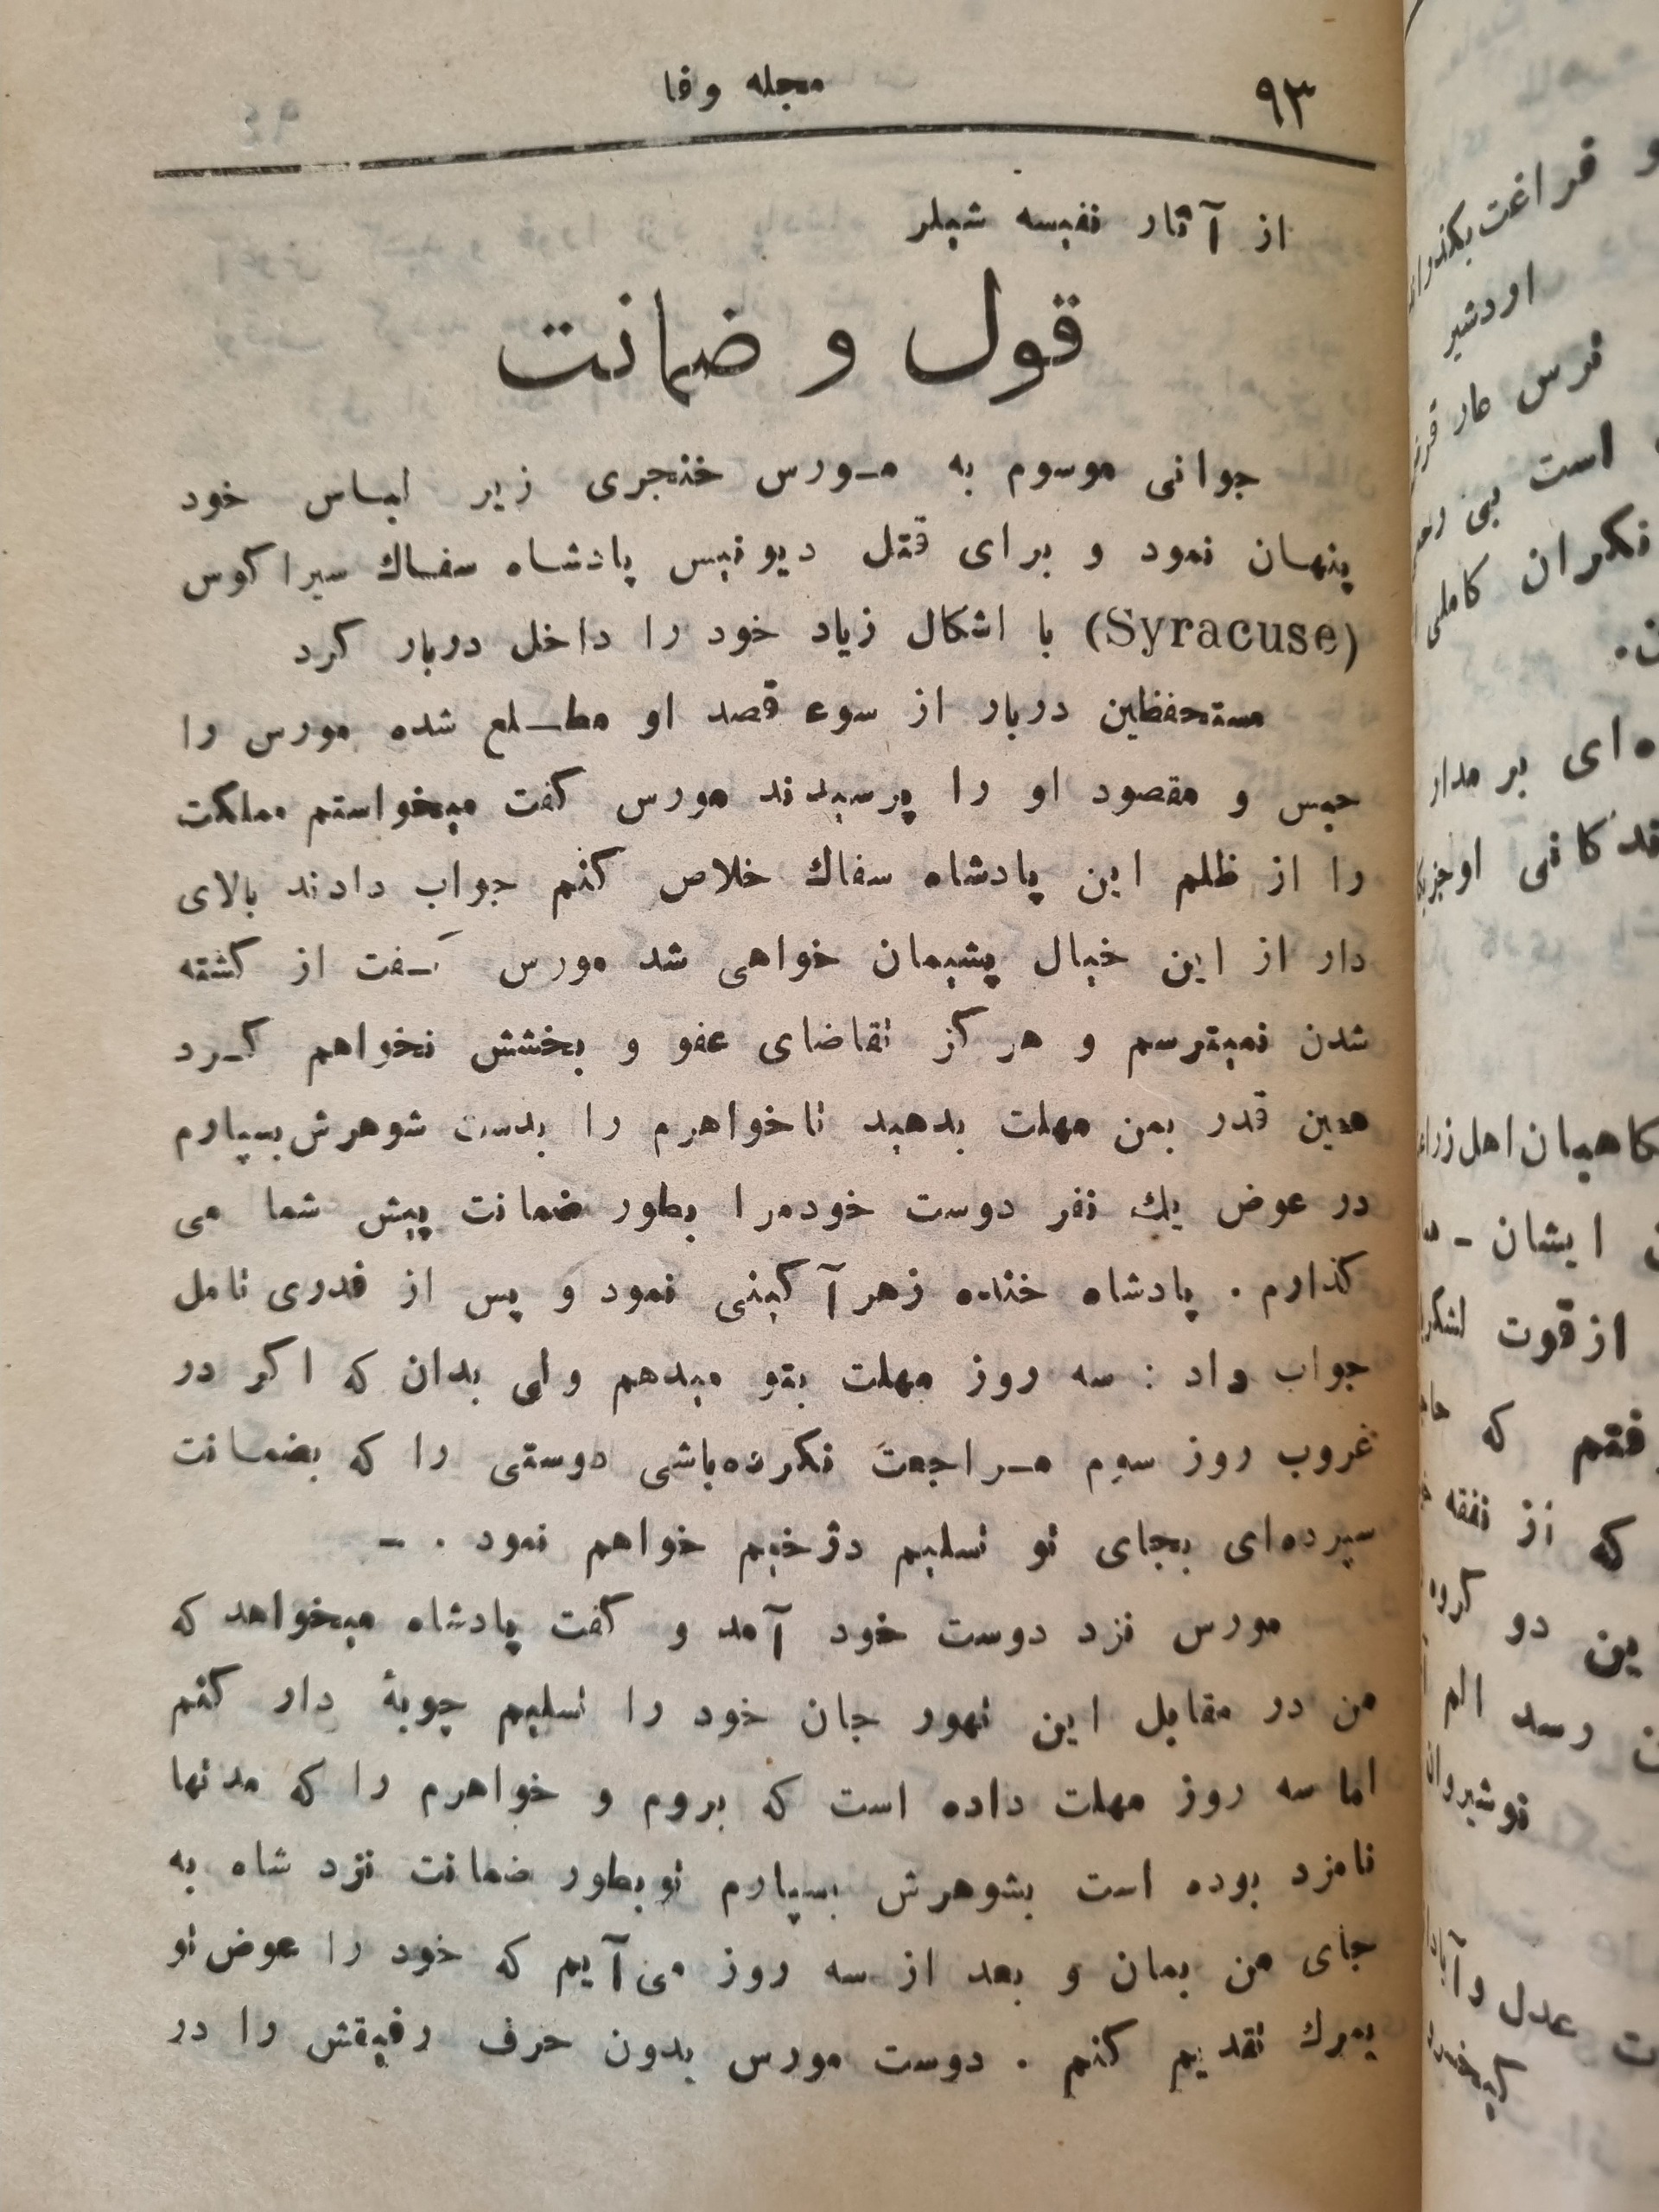 ۹۳
مجله وفا
از آثار نفیسه شیلر
قول و ضمانت
جوانی موسوم به مـورس خنجری زیر لبـاس خود
پنهـان نمود و برای قتل دیونیس پادشـاه سفـاك سیراکوس
(Syracuse) با اشکال زیاد خود را داخل دربار کرد
مستحفظین دربار از سوء قصد او مطـلع شده مورس را
حبس و مقصود او را پرسیدند مورس کفت میخواستم مملکت
را از ظلم این پادشاه سفاك خلاص کنم جواب دادند بالای
دار از این خیال پشیمان خواهی شد مورس کـفت از کشته
شدن نمیترسم و هرکز تقاضای عفو و بخشش نخواهم کـرد
همین قدر بمن مهلت بدهید تاخواهرم را بدست شوهرش بسپارم
در عوض یك نفر دوست خودمرا بطور ضمانت پیش شما می
کذارم . پادشاه خنده زهرآکینی نمود و پس از قدری تامل
جواب داد : سه روز مهلت بتو میدهم ولی بدان که اکر در
غروب روز سوم مـراجعت نکرده‌باشی دوستی را که بضمـانت
سپرده‌ای بجای تو تسلیم دژخیم خواهم نمود . ـ
مورس نزد دوست خود آمد و کفت پادشاه میخواهد که
من در مقابل این تهور جان خود را تسلیم چوبهٔ دار کنم
اما سه روز مهلت داده است که بروم و خواهرم را که مدتها
نامزد بوده است بشوهرش بسپارم توبطور ضمانت نزد شاه به
جای من بمان و بعد از سه روز می‌آیم که خود را عوض تو
بمرك تقدیم کنم . دوست مورس بدون حرف رفیقش را در
و فراغت
اردشیر
ترس
است بی
نکران کاملی
ه‌ای بر مدار
کاهیان اهل
ایشان ـ
ازقوت
که
که از نفقه
ین دو کروه
رسد الم
نوشیروان
عدل و
کیخسرو